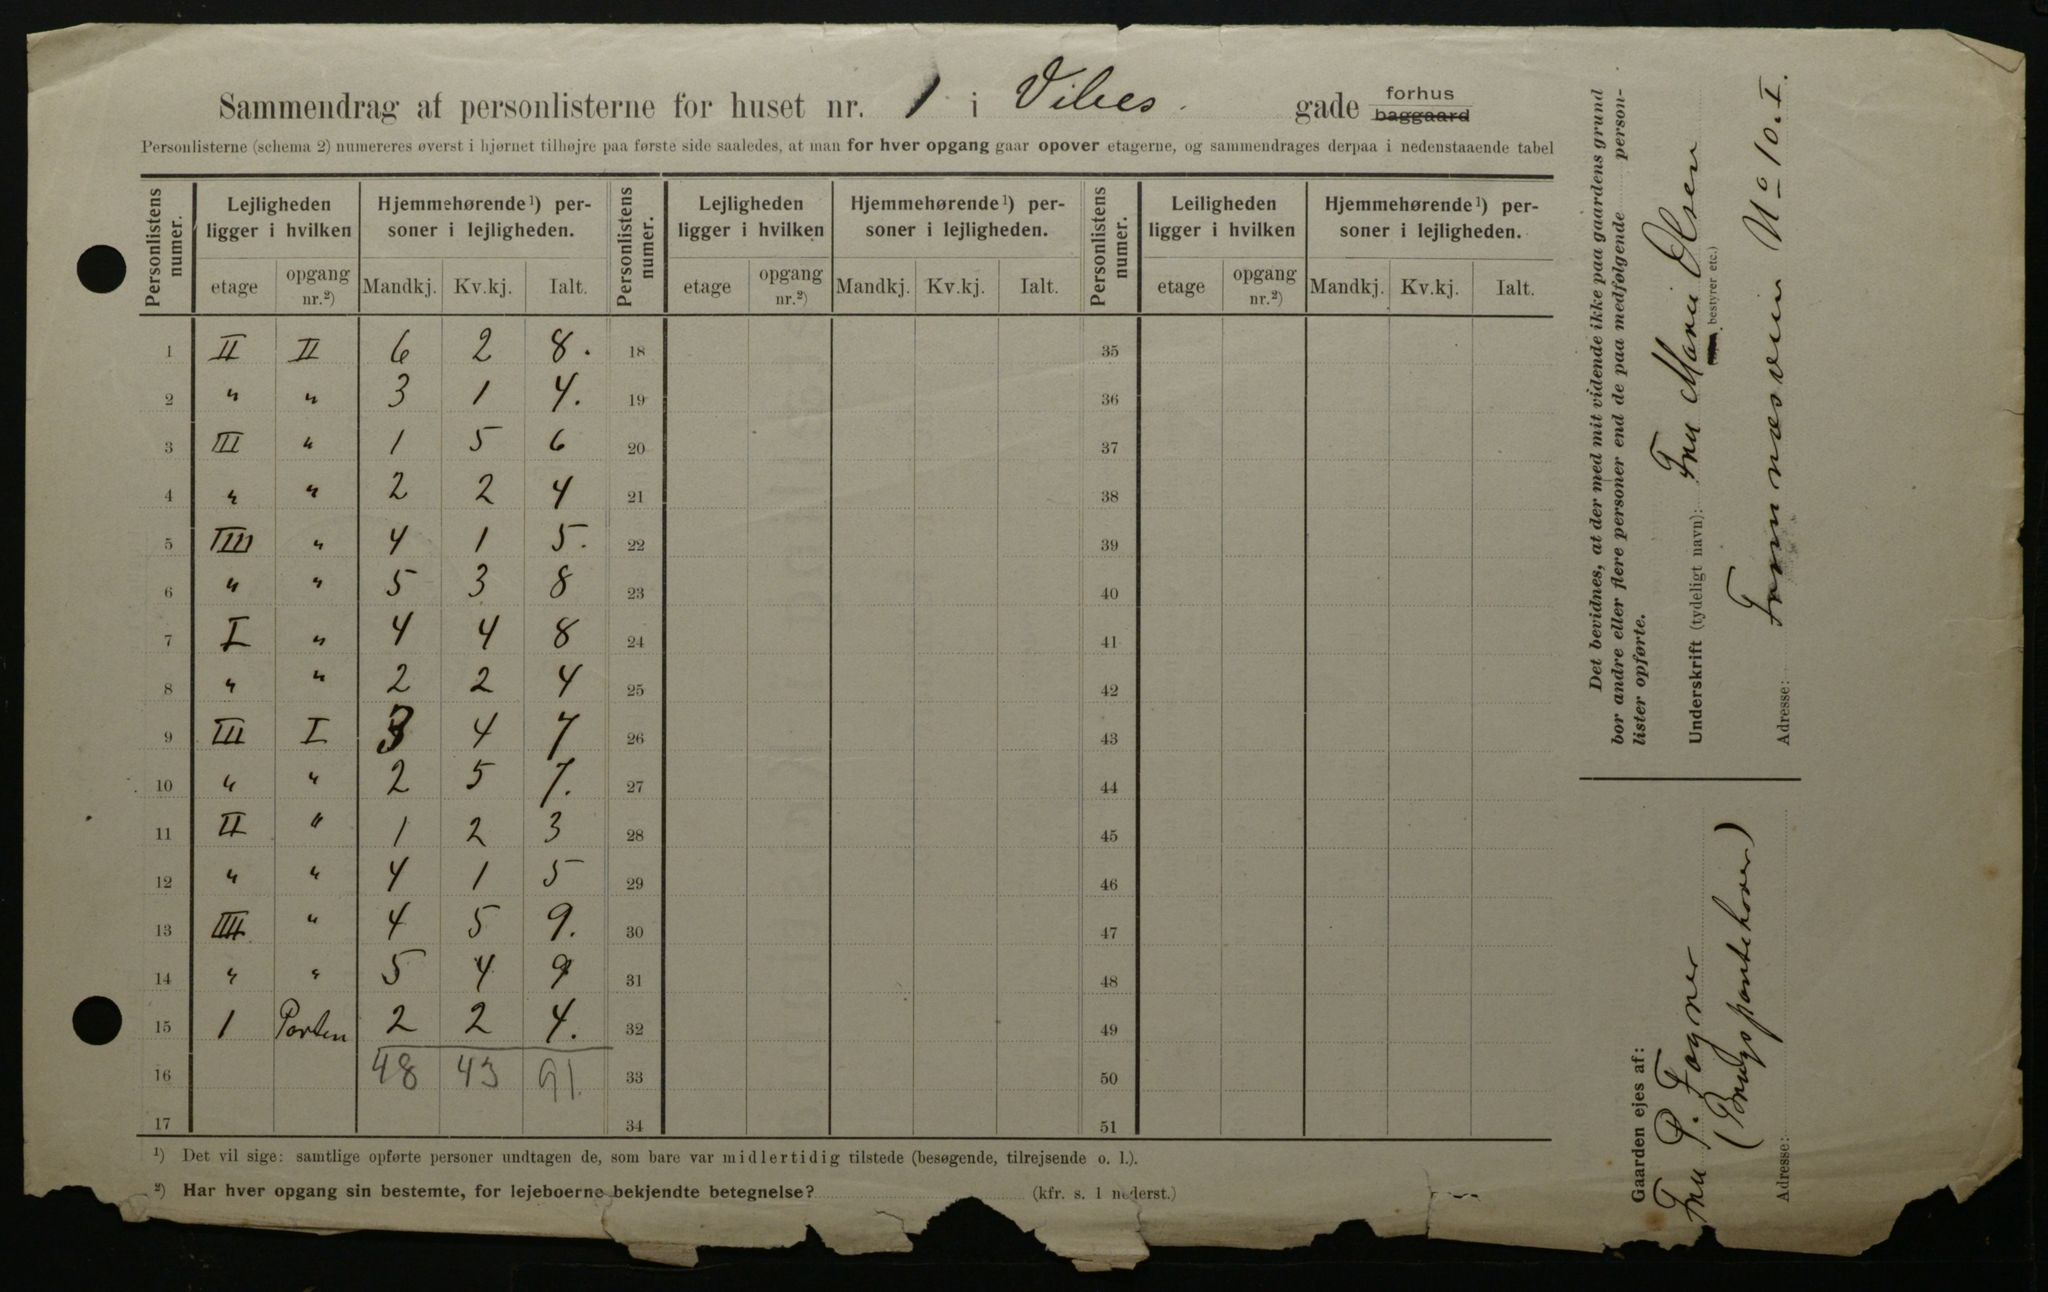 Sammendrag af personlisterne for huset nr. 1 i Vibes gade forhus baggaard
Personlisterne (schema 2) numereres øverst i hjørnet tilhøjre paa første side saaledes, at man for hver opgang gaar opover etagerne, og sammendrages derpaa i nedenstaaende tabel
Personlistens numer. Lejligheden ligger i hvilken Hjemmehørende¹) personer i lejligheden. Personlistens numer. Lejligheden ligger i hvilken Hjemmehørende¹) personer i lejligheden. Personlistens numer. Leiligheden ligger i hvilken Hjemmehørende¹) personer i lejligheden.
etage opgang nr.²) Mandkj. Kv.kj. Ialt. etage opgang nr.²) Mandkj. Kv.kj. Ialt. etage opgang nr.²) Mandkj. Kv.kj. Ialt.
1 II II 6 2 8. 18 35
2 " " 3 1 4. 19 36
3 III " 1 5 6 20 37
4 " " 2 2 4 21 38
5 IIII " 4 1 5. 22 39
6 " " 5 3 8 23 40
7 I " 4 4 8 24 41
8 " " 2 2 4 25 42
9 III I 3 4 7 26 43
10 " " 2 5 7. 27 44
11 II " 1 2 3 28 45
12 " " 4 1 5 29 46
13 IIII " 4 5 9. 30 47
14 " " 5 4 9 31 48
15 1 Porten 2 2 4. 32 49
16 48 43 91. 33 50
17 34 51
¹) Det vil sige: samtlige opførte personer undtagen de, som bare var midlertidig tilstede (besøgende, tilrejsende o. l.).
²) Har hver opgang sin bestemte, for lejeboerne bekjendte betegnelse? (kfr. s. 1 nederst.)
Det bevidnes, at der med mit vidende ikke paa gaardens grund
bor andre eller flere personer end de paa medfølgende personlister opførte.
Underskrift (tydeligt navn): Fru Marie Olsen
bestyrer etc.)
Adresse: Framnæsvein No 10. I.
Gaarden ejes af:
Fru P. Fogner
(Brugspantehaver)
Adresse: